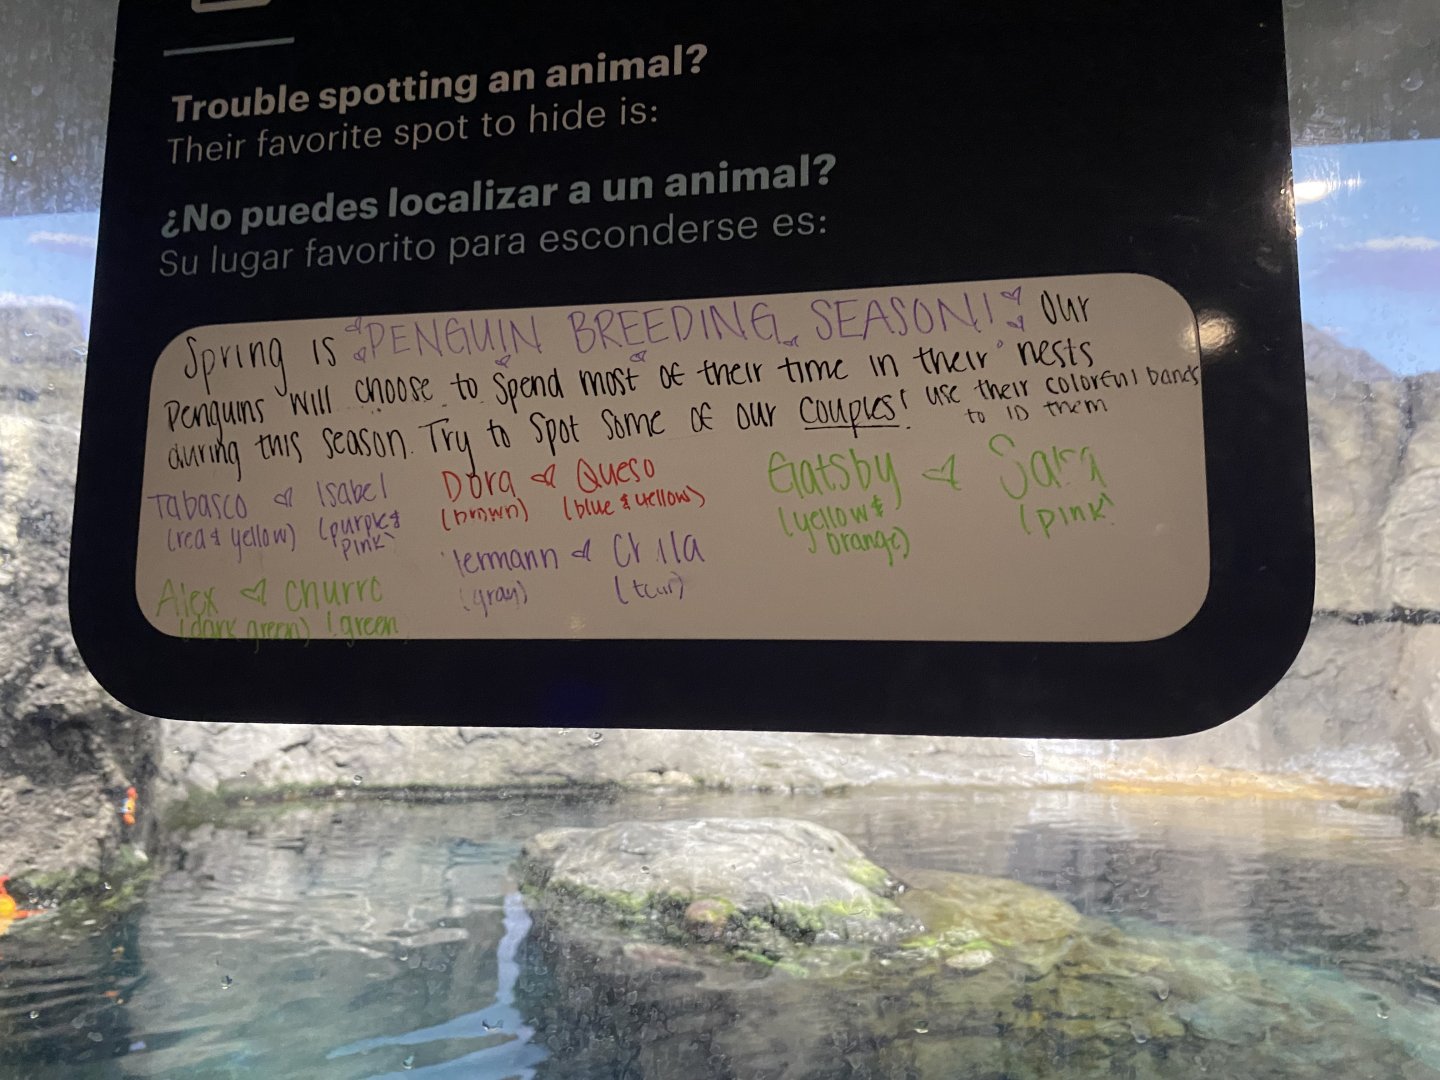 Trouble spotting an animal?
Their favorite spot to hide is:
¿No puedes localizar a un animal?
Su lugar favorito para esconderse es:
Spring is PENGUIN BREEDING SEASON! Our
Penguins will choose to spend most of their time in their nests
during this season. Try to spot some of our couples! use their colorful bands
to ID them
Tabasco Isabel
(red & yellow) (purple &
pink)
Dora Queso
(brown) (blue & yellow)
Gatsby Sara
(yellow & (pink)
orange)
(gray)
Alex
(dark green) (green